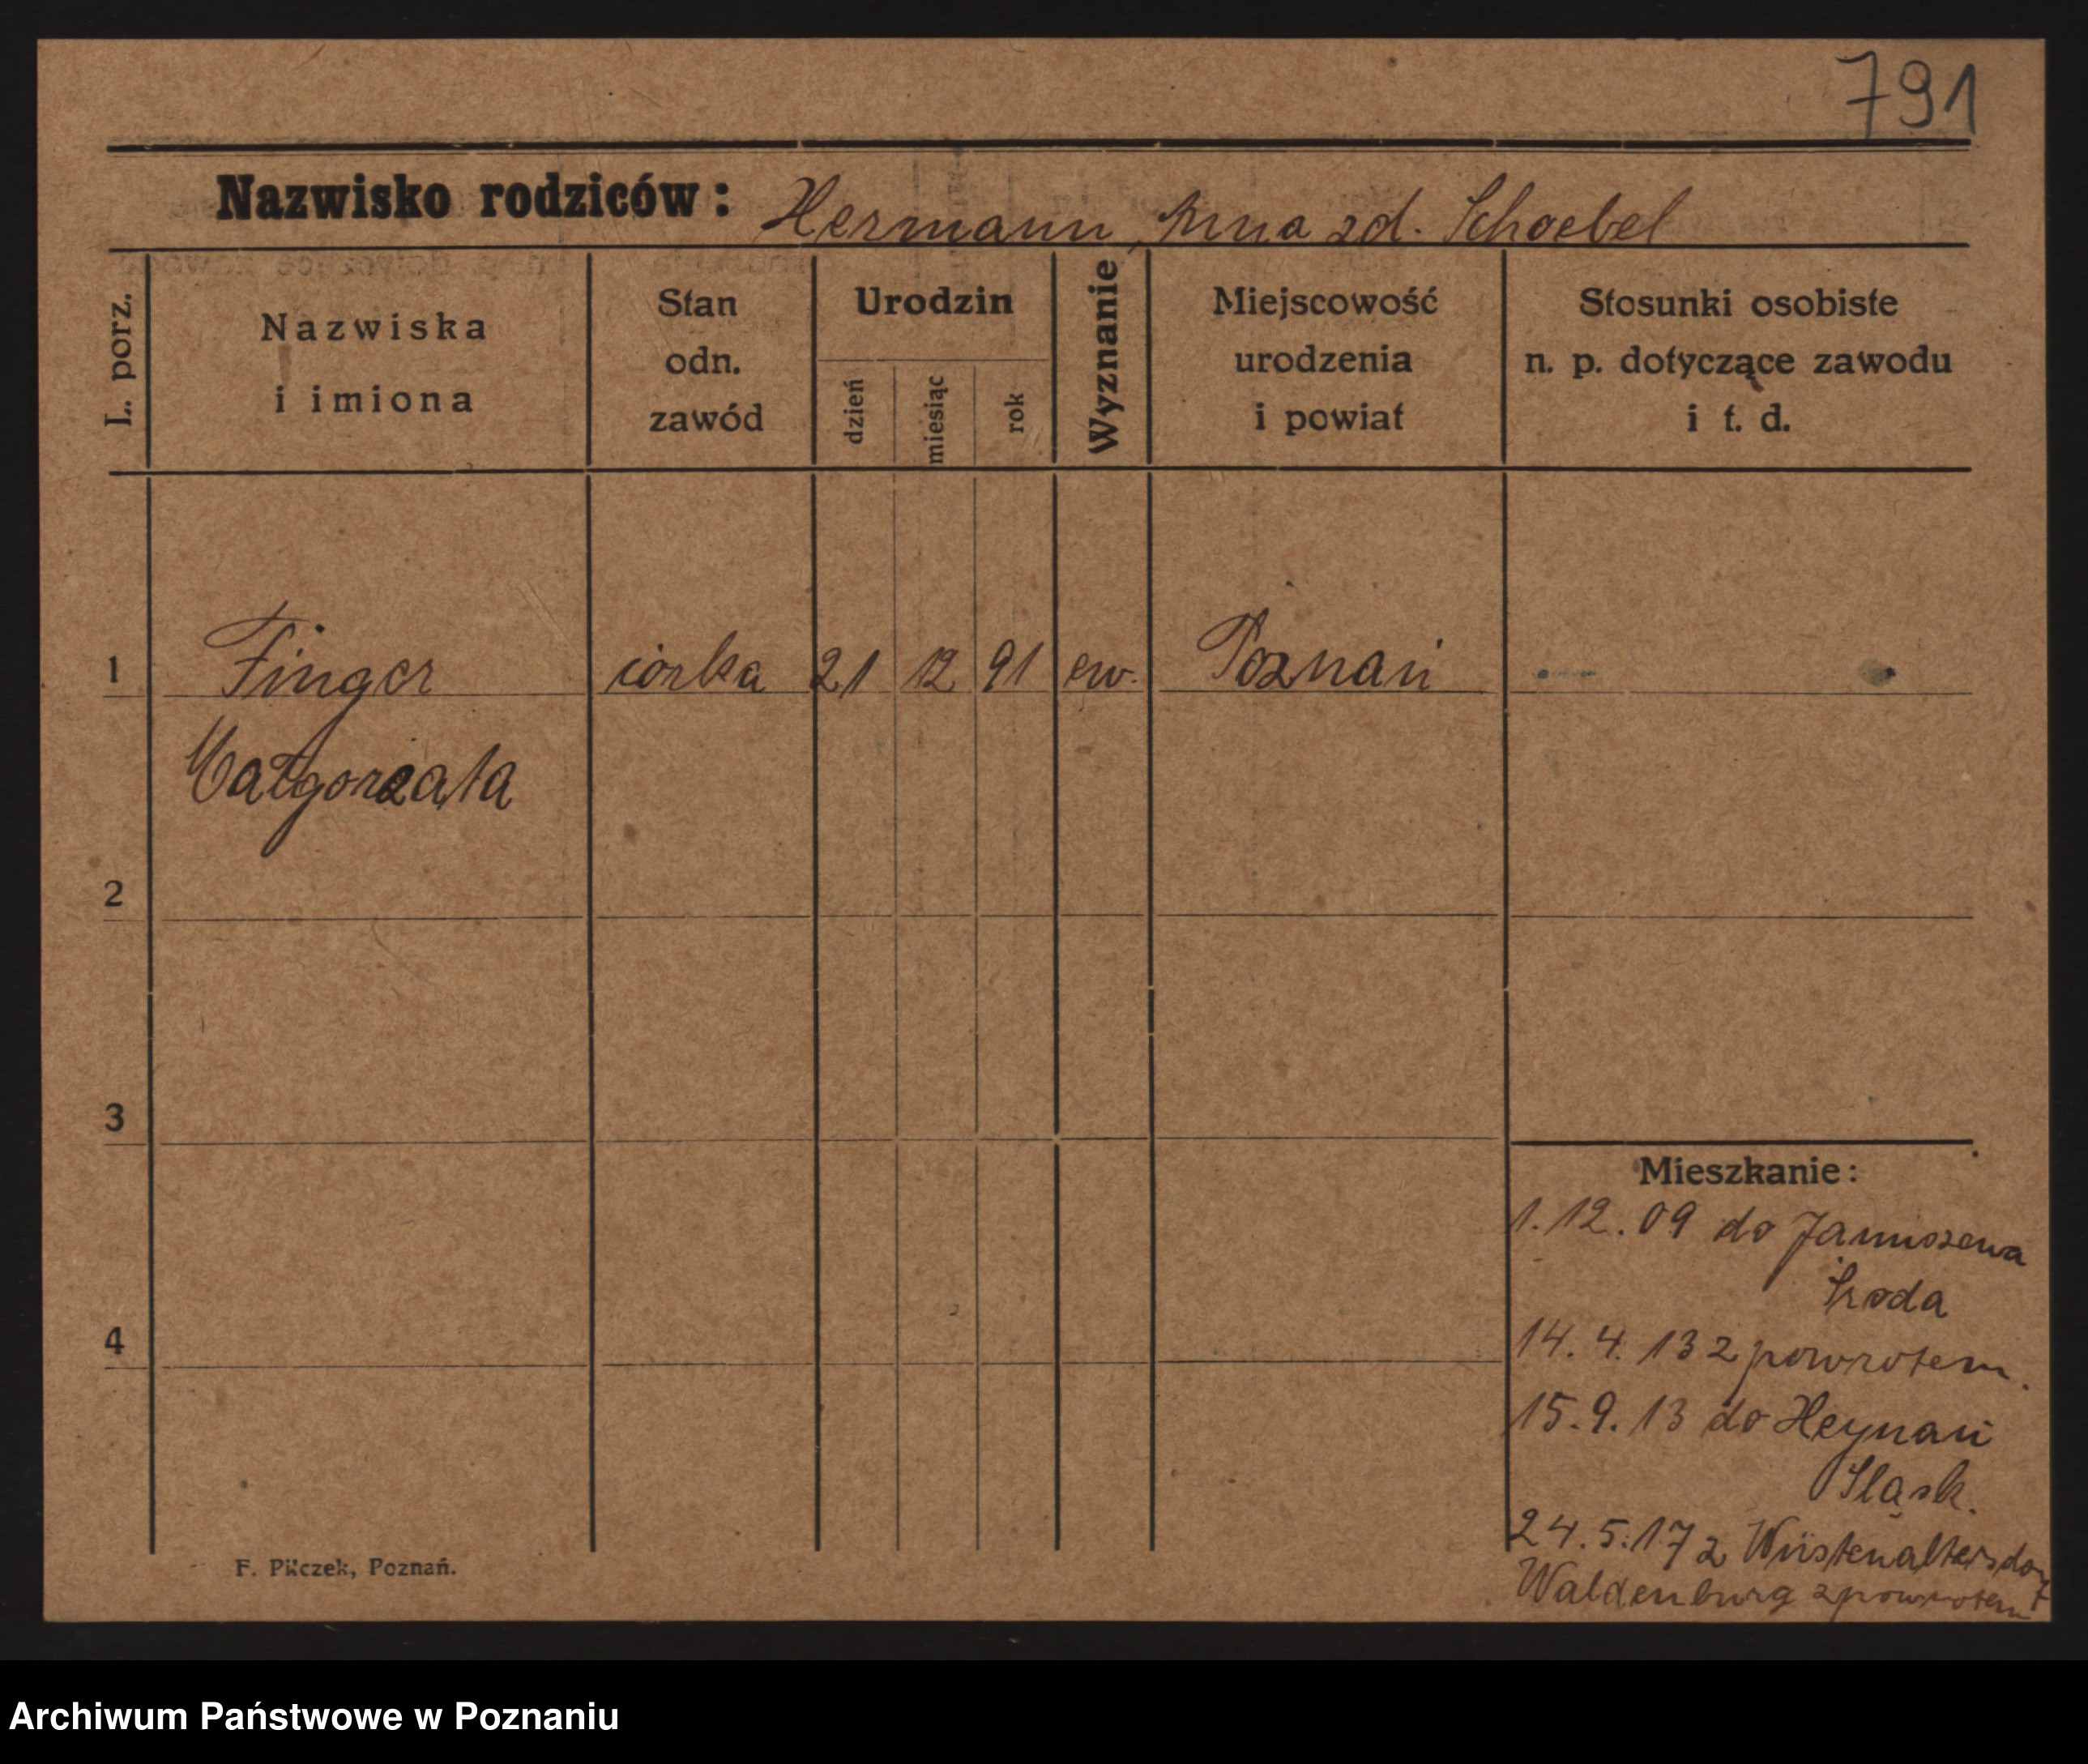 791
Nazwisko rodziców: Hermann, Anna zd. Schoebel
L. porz.
Nazwiska
i imiona
Stan
odn.
zawód
Urodzin
dzień
miesiąc
rok
Wyznanie
Miejscowość
urodzenia
i powiat
Stosunki osobiste
n. p. dotyczące zawodu
i t. d.
1 Finger córka 21 12 91 ew. Poznań
Małgorzata
2
3
4
Mieszkanie:
1. 12. 09 do Januszewa
Środa
14. 4. 13 z powrotem.
15. 9. 13 do Heynau
Śląsk.
24. 5. 17 z Wüstenaltersdorf
Waldenburg z powrotem
F. Pilczek, Poznań.
Archiwum Państwowe w Poznaniu